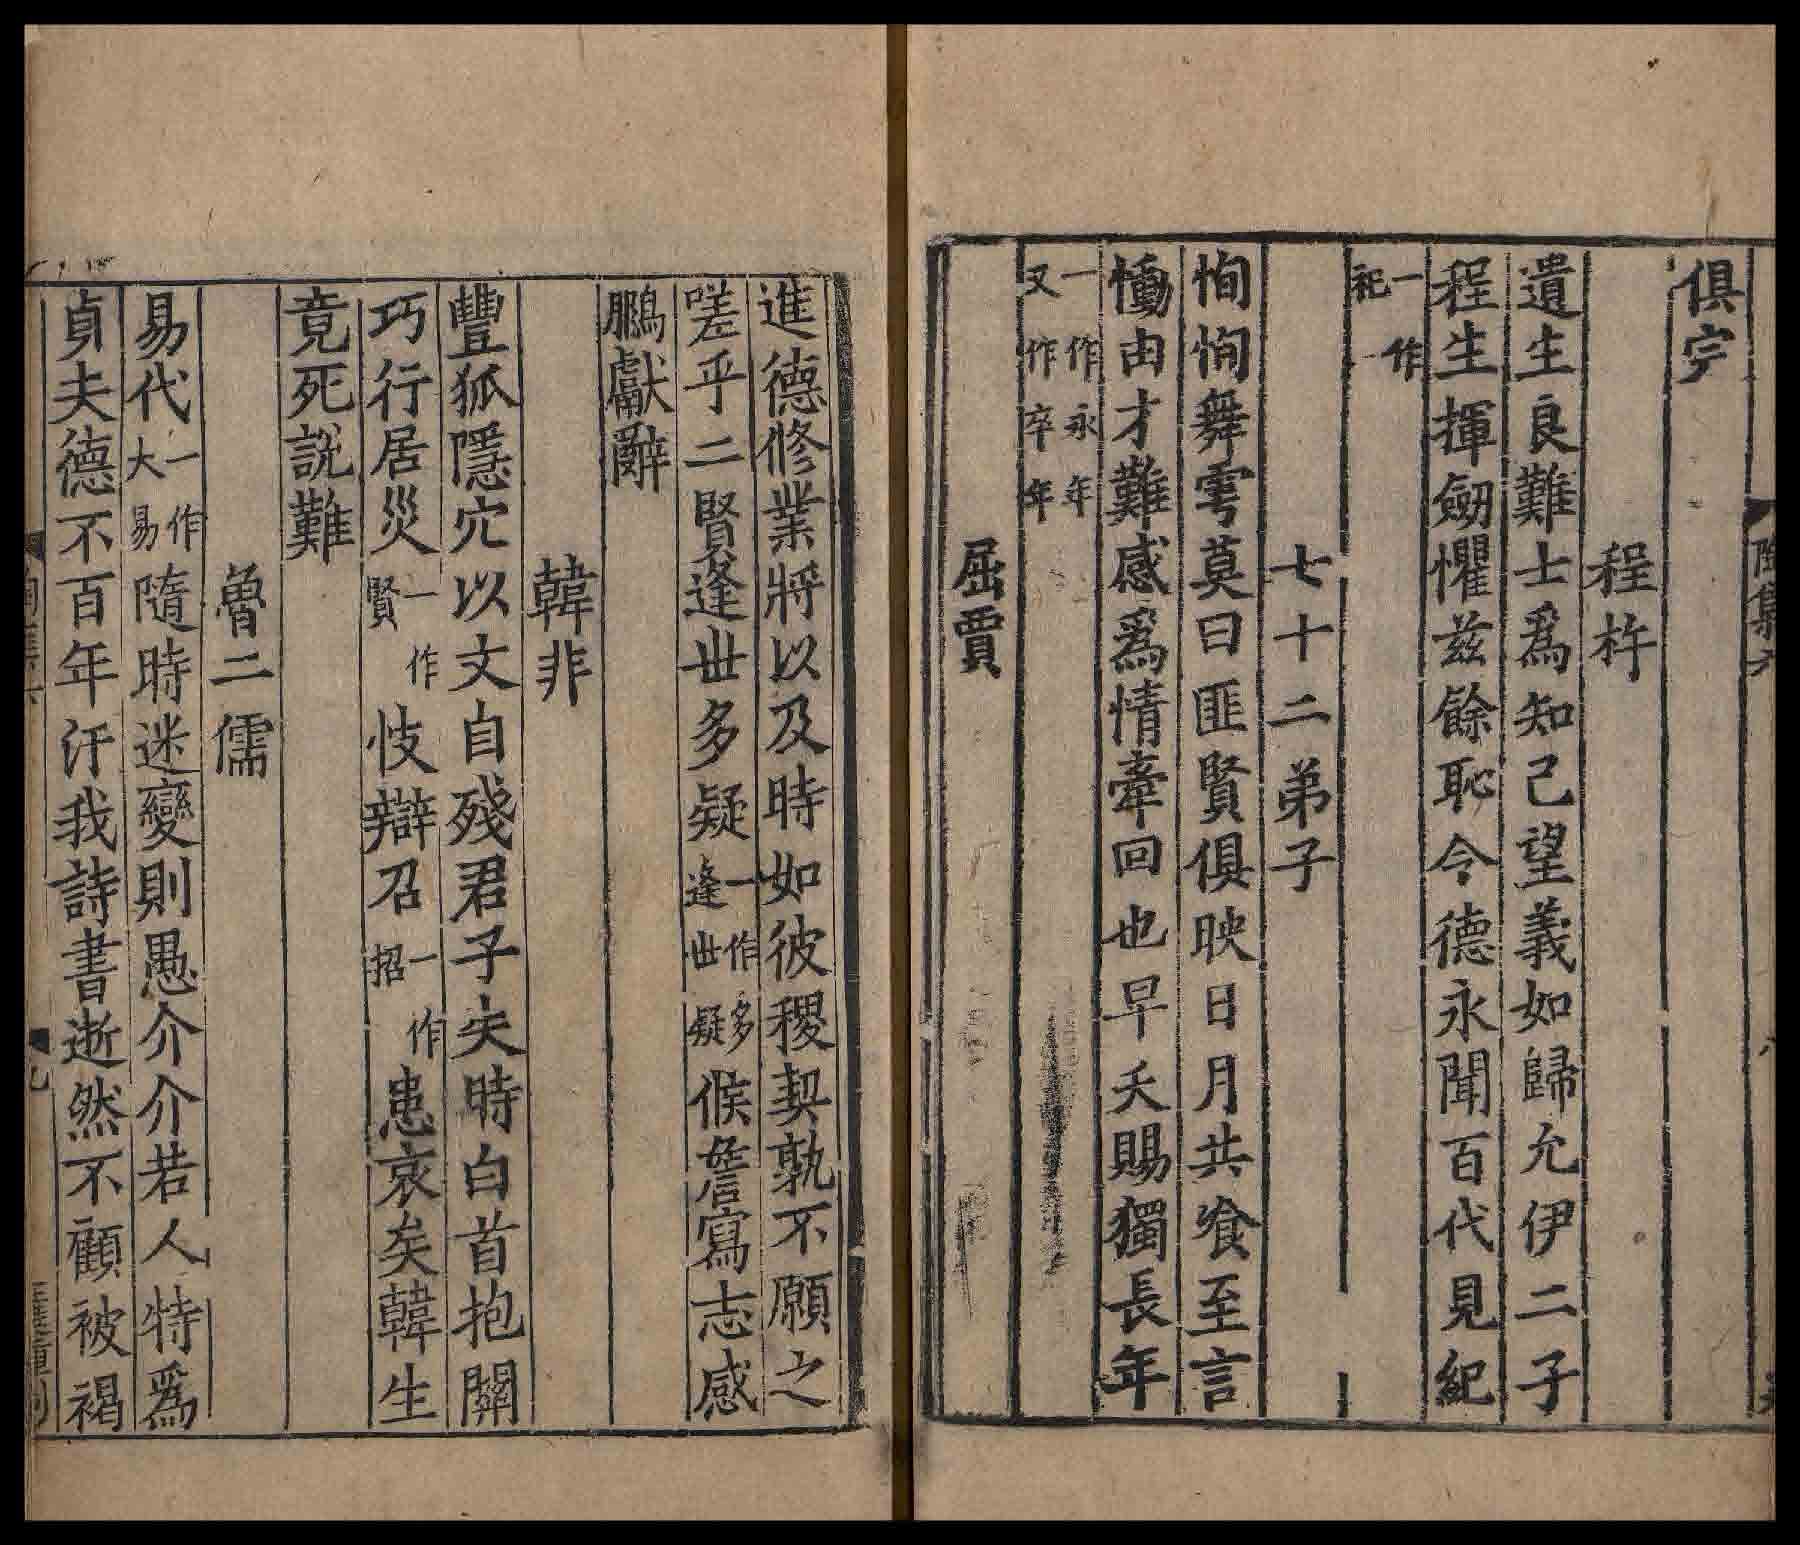 俱字
程杵
遺生良難士爲知己望義如歸允伊二子
程生揮劔懼兹餘恥令德永聞百代見紀
一作
祀
七十二弟子
恂恂舞雩莫曰匪賢俱映日月共飡至言
慟由才難感爲情牽回也早夭賜獨長年
一作永年
又作卒年
屈賈
進德修業將以及時如彼稷契孰不願之
嗟乎二賢逢世多疑一作多逢世疑候詹寫志感
鵩獻辭
韓非
豐狐隱穴以文自殘君子失時白首抱關
巧行居災一作賢忮辯召一作招患哀矣韓生
竟死說難
魯二儒
易代一作大易隨時迷變則愚介介若人特爲
貞夫德不百年汙我詩書逝然不顧被褐